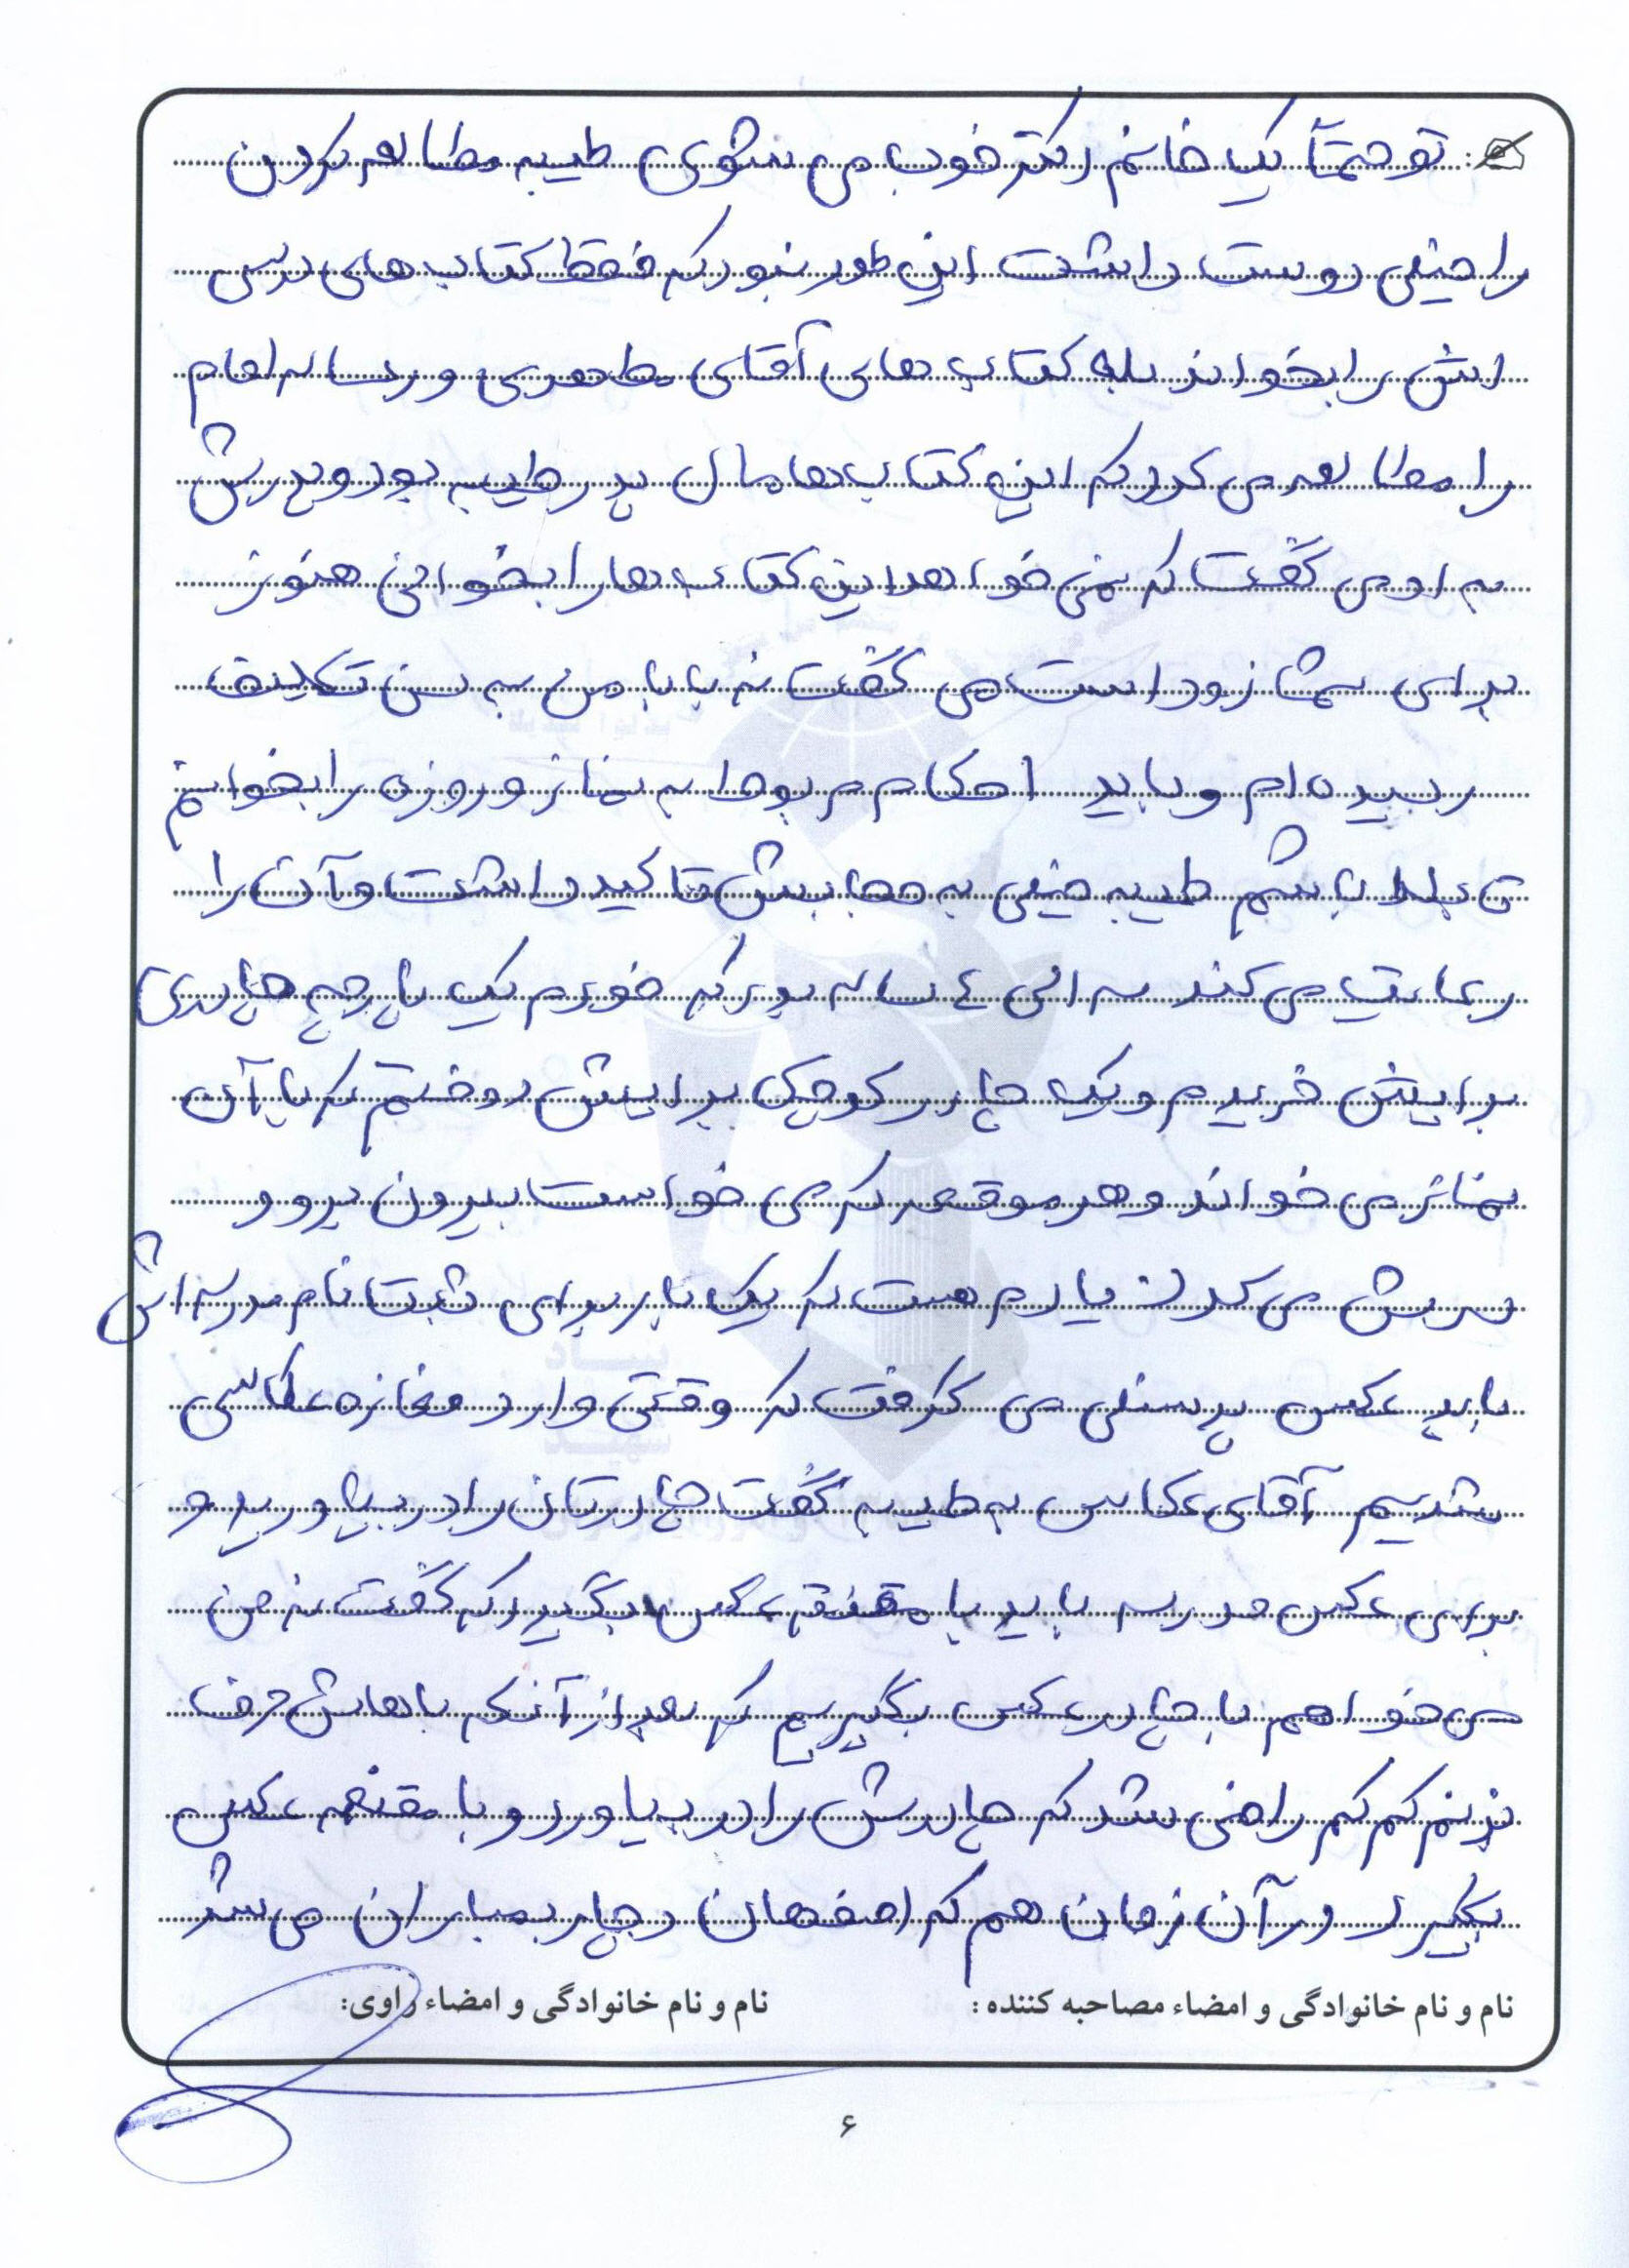 تو حتماً یک خانم دکتر خوب می شوی طیبه مطالعه کردن
را خیلی دوست داشت این طور نبود که فقط کتاب های درسی
اش را بخواند بلکه کتاب های آقای مطهری و رساله امام
را مطالعه می کرد که این کتاب ها مال پدر طیبه بود و پدرش
به او می گفت که نمی خواهد این کتاب ها را بخوانی هنوز
برای شما زود است می گفت نه بابا من به سن تکلیف
رسیده ام و باید احکام مربوط به نماز و روزه را بخوانم
تا بلد باشم طیبه خیلی به حجابش تاکید داشت و آن را
رعایت می کند سه الی ٤ ساله بود که خودم یک پارچه چادری
برایش خریدم و یک چادر کوچک برایش دوختم که با آن
نماز می خواند و هر موقعه که می خواست بیرون برود
سرش می کرد یادم هست که یک بار برای ثبت نام مدرسه اش
باید عکس پرسنلی می گرفت که وقتی وارد مغازه عکاسی
شدیم آقای عکاس به طیبه گفت چادرتان را در بیاورید و
برای عکس مدرسه باید با مقنعه عکس بگیرد که گفت نه من
می خواهم با چادر عکس بگیریم که بعد از آنکه باهاش حرف
زدنم کم کم راضی شد که چادرش را در بیاورد و با مقنعه عکس
بگیرد در آن زمان هم که اصفهان دچار بمباران می شد
نام و نام خانوادگی و امضاء مصاحبه کننده : نام و نام خانوادگی و امضاء راوی:
۶